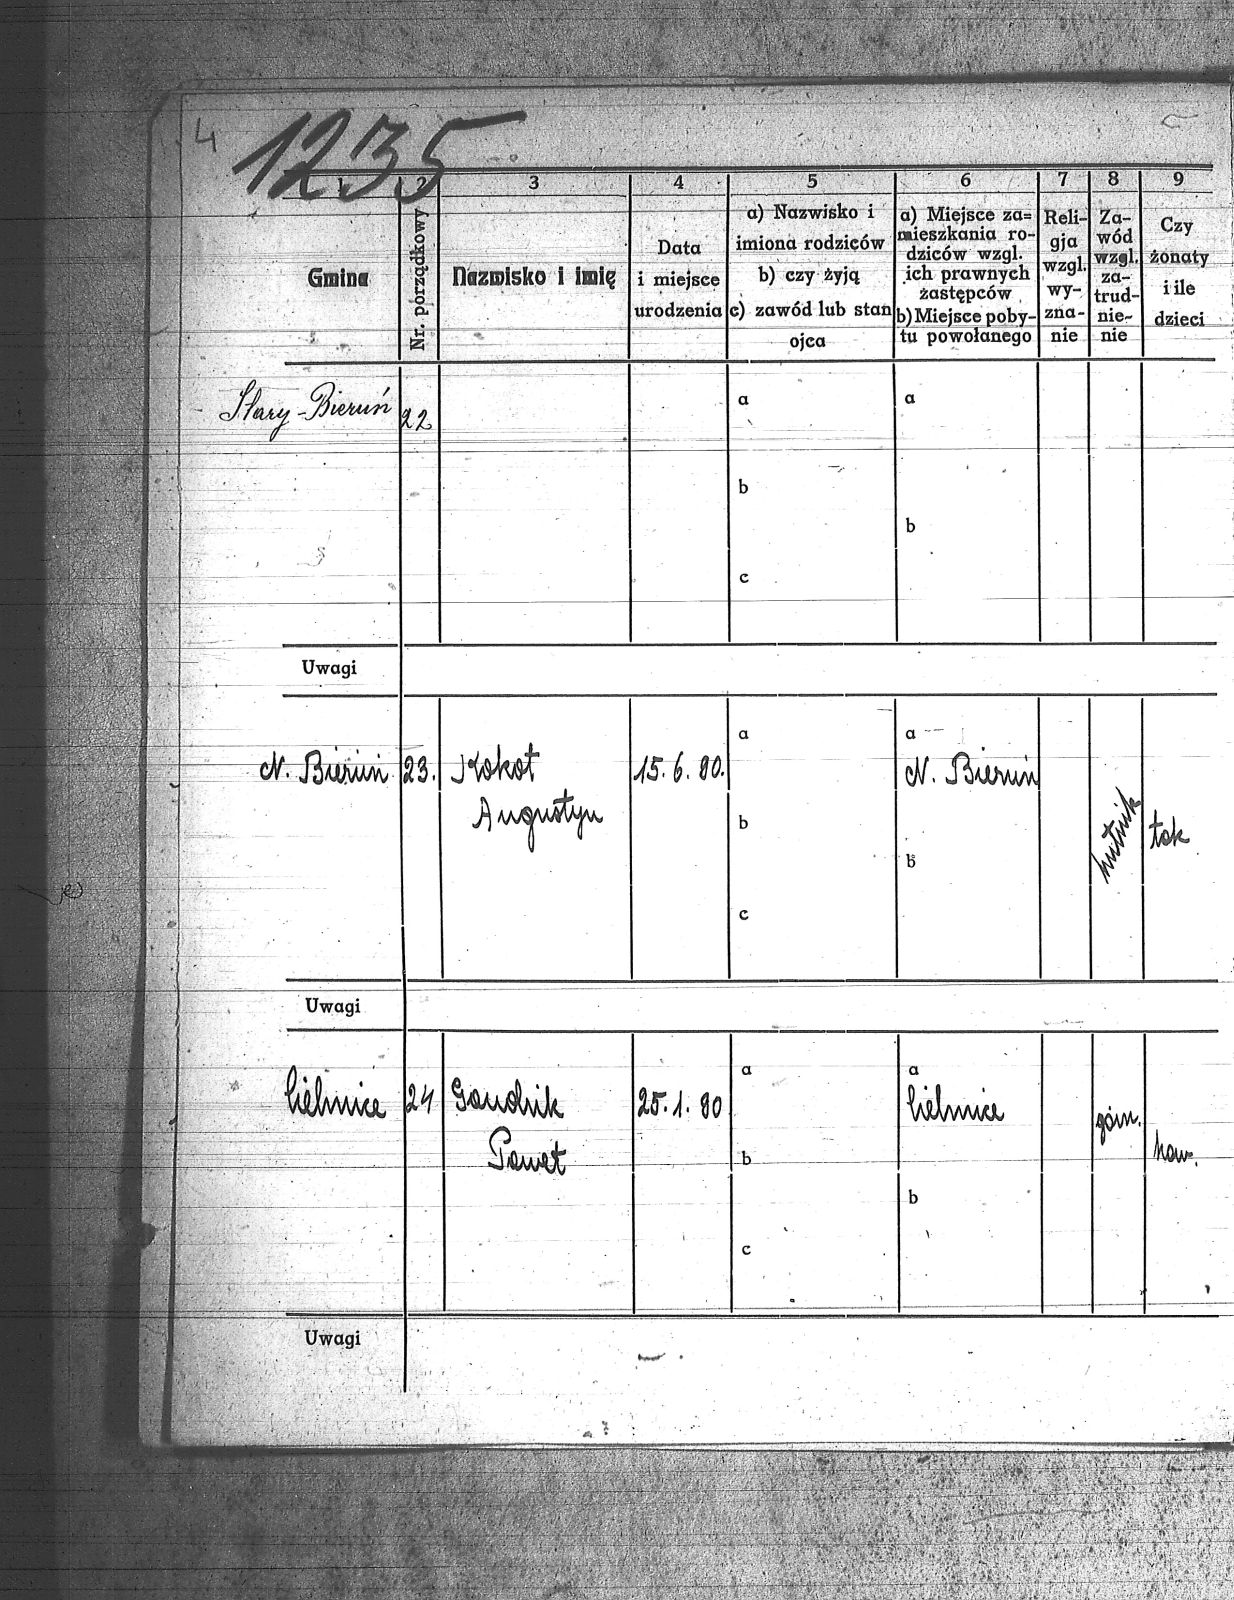 4
1235
1
2
3
4
5
6
7
8
9
Gmina
Nr. porządkowy
Nazwisko i imię
Data
i miejsce
urodzenia
a) Nazwisko i
imiona rodziców
b) czy żyją
c) zawód lub stan
ojca
a) Miejsce za=
mieszkania ro-
dziców wzgl.
ich prawnych
zastępców
b) Miejsce poby-
tu powołanego
Reli-
gja
wzgl.
wy-
zna-
nie
Za-
wód
wzgl.
za-
trud-
nie-
nie
Czy
żonaty
i ile
dzieci
Stary-Bieruń
22
a
b
c
a
b
Uwagi
N. Bieruń
23.
Kokot
Augustyn
15.6.80.
a
b
c
a
N. Bieruń
b
hutnik
tak
Uwagi
Cielmice
24
Gondzik
Paweł
25.1.80
a
b
c
a
Cielmice
b
górn.
kaw.
Uwagi